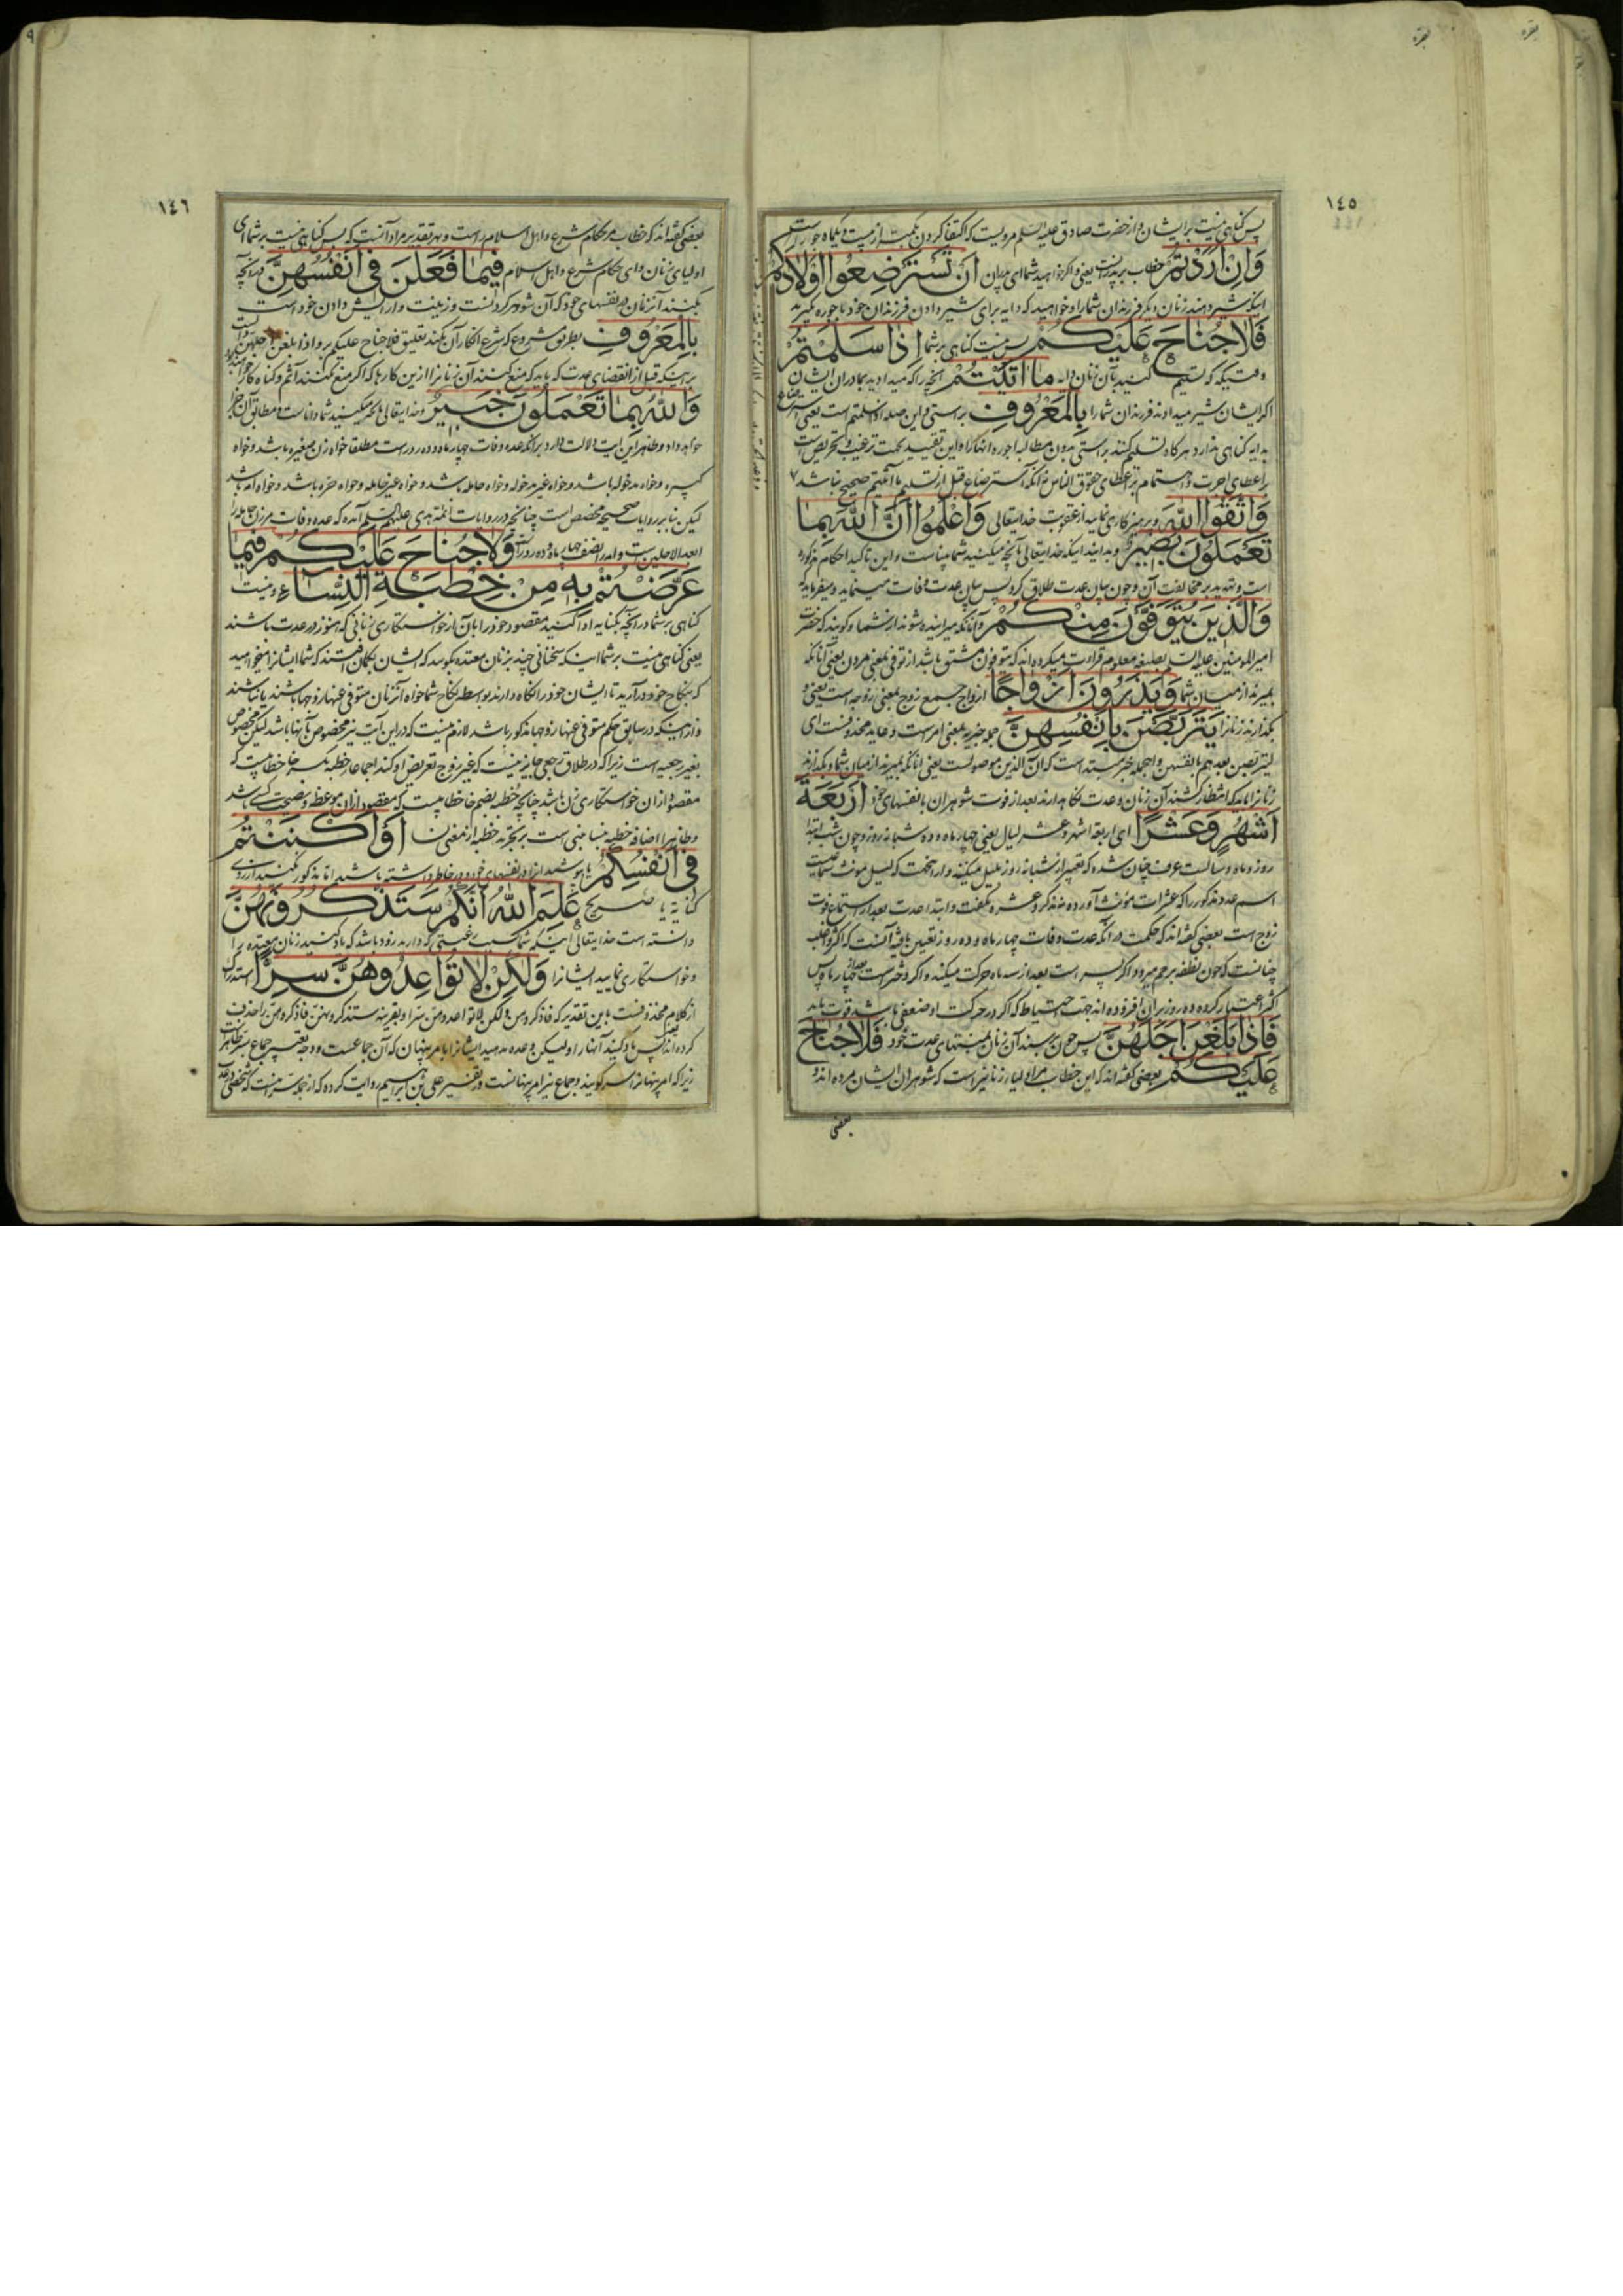 بقره
بقره
١٤٥
پس کناهی نیست بر ایشان و از حضرت صادق علیه السلم مرویست که اکتفا کردن بکمتر از بیست و یکماه جور است
وَاِنْ اَرَدْتُمْ خطاب بپدرانست یعنی و اکر خواهید شما ای پدران اَنْ تَسْتَرْضِعُوا اَوْلادَكُمْ
اینکه شیر دهند زنان دیکر فرزندان شما را و خواهید که دایه برای شیر دادن فرزندان خود باجوره بکیرید
فَلاجُناحَ عَلَيْكُمْ پس نیست کناهی بر شما اِذا سَلَّمْتُمْ
وقتیکه که تسلیم کنید بآن زنان دایه ما اٰتَيْتُمْ انچه را که میدادید بمادران ایشان
اکر ایشان شیر میدادند فرزندان شما را بِالْمَعْرُوفِ براستی و این صله اذا سلمتم است یعنی استرضاع
دایه کناهی ندارد هرکاه تسلیم کنند براستی بدون مطالبه اجوره انها را و این تقیید بجهت ترغیب و تحریص است
بر اعطای اجرت و اهتمام بر اعطای حقوق الناس نه آنکه استرضاع قبل از تسلیم ما آتیتم صحیح نباشد
وَاتَّقُوا اللّٰهَ و پرهیزکاری نمایید از عقوبت خدایتعالی وَاعْلَمُوا اَنَّ اللّٰهَ بِما
تَعْمَلُونَ بَصِيرٌ و بدانید اینکه خدایتعالی بآنچه میکنید شما بیناست و این تاکید احکام مزکوره
است و تهدید بر مخالفت آن و چون بیان عدت طلاق کرد پس بیان عدت وفات مینماید و میفرماید که
وَالَّذِينَ يُتَوَفَّوْنَ مِنْكُمْ و آنانکه میرانیده شوند از شما و کویند که حضرت
امیرالمومنین علیه السلم بصیغه معلوم قراءت میکرده اند که یتوفون مشتق باشد از توفی بمعنی مردن یعنی آنانکه
بمیرند از میان شما وَيَذَرُونَ اَزْواجًا ازواج جمع زوج بمعنی زوجه است یعنی و
بکذارند زنانرا يَتَرَبَّصْنَ بِاَنْفُسِهِنَّ جمله خبریه بمعنی امر است و عاید محذوفست ای
لیتربصن بعدهم بانفسهن و اجمله خبر مبتداست که آن الذین موصولست یعنی انانکه بمیرند از میان شما و بکذارند
زنانرا باید که انتظار کشند آن زنان و عدت نکاهدارند بعد از فوت شوهران بانفسهای خود اَرْبَعَةَ
اَشْهُرٍ وَعَشْرًا ای اربعة اشهر و عشر لیال یعنی چهار ماه و ده شبانه روز و چون شب ابتدا
روز و ماه و سالست عرف چنان شده که تعبیر از شبانه روز بلیل میکنند و از انجهت که لیل مونث سماعیست
اسم عدد مذکور را که عشرات مؤنث آورده نه مذکر و عشره نکفت و ابتدا عدت بعد از استماع فوت
زوج است بعضی کفته اند که حکمت در آنکه عدت وفات چهار ماه و ده روز تعیین یافته آنست که اکثر و اغلب
چنانست که چون نطفه برحم میرود اکر پسر است بعد از سه ماه حرکت میکند و اکر دختر است بعد از چهار ماه پس
اکثر اعتبار کرده و ده روز بر آن افزوده اند جهت احتیاط که اکر در حرکت او ضعفی باشد قوت یابد
فَاِذا بَلَغْنَ اَجَلَهُنَّ پس چون برسند آن زنان بمنتهای عدت خود فَلاجُناحَ
عَلَيْكُمْ بعضی کفته اند که این خطاب مر اولیای زنانیراست که شوهران ایشان مرده اند و
بعضی
١٤٦
بعضی کفته اند که خطاب مر حکام شرع و اهل اسلام راست و بهر تقدیر مراد آنست که پس کناهی نیست بر شما ای
اولیای زنان و ای حکام شرع و اهل اسلام فِيما فَعَلْنَ فِي اَنْفُسِهِنَّ در آنچه
بکنند آنزنان در نفسهای خود که آن شوهر کردنست و زینت و ارایش دادن خود است
بِالْمَعْرُوفِ بطریق مشروع که شرع انکار آن نکند تعلیق فلا جناح علیکم بر و اذا بلغن اجلهن دالست
بر اینکه قبل از انقضای عدت که باید که منع کنند آن زنانرا ازین کارها که اکر منع نکنند آثم و کناه کار خواهند بود
وَاللّٰهُ بِما تَعْمَلُونَ خَبِيرٌ و خدایتعالی بآنچه میکنید شما داناست و مطابق آن جزا
خواهد داد و ظاهر این ایت دلالت دارد بر آنکه عده وفات چهار ماه و ده روز است مطلقا خواه زن صغیره باشد و خواه
کبیره و خواه مدخوله باشد و خواه غیر مدخوله و خواه حامله باشد و خواه غیر حامله و خواه حره باشد و خواه امه باشد
لیکن بنا بر روایات صحیحه مخصص است چنانچه در روایات ائمه هدی علیهم السلم آمده که عده وفات مر زن حامله را
ابعد الاجلین است و امه را نصف چهار ماه و ده روز است وَلاجُناحَ عَلَيْكُمْ فِيما
عَرَّضْتُمْ بِهِ مِنْ خِطْبَةِ النِّساءِ و نیست
کناهی بر شما در آنچه بکنایه ادا کنید مقصود خود را بآن از خواستکاری زنانی که هنوز در عدت باشند
یعنی کناهی نیست بر شما اینکه سخنانی چند بزنان معتده بکویید که ایشان بکمان افتند که شما ایشانرا میخواهید
که بنکاح خود درآرید تا ایشان خود را نکاه دارند بواسطه نکاح شما خواه آنزنان متوفی عنها زوجها باشند یا نباشند
و از اینکه در سابق حکم متوفی عنها زوجها مذکور باشد لازم نیست که در این آیت نیز مخصوص بآنها باشد لیکن مخصوص
بغیر رجعیه است زیرا که در طلاق رجعی جایز نیست که غیر زوج تعریض او کند اجماعا خطبه بکسر خا خطابیست که
مقصود از ان خواستکاری زن باشد چنانچه خطبه بضم خا خطابیست که مقصود از ان موعظه و نصیحت کسی باشد
اَوْ اَكْنَنْتُمْ
فِي اَنْفُسِكُمْ یا پوشید انرا در نفسهای خود و در خاطر داشته باشید اما مذکور نکنید از روی
کنایه یا صریح عَلِمَ اللّٰهُ اَنَّكُمْ سَتَذْكُرُونَهُنَّ
دانسته است خدایتعالی اینکه شما بسبب رغبتی که دارید زود باشد که یاد کنید زنان معتده را
و خواستکاری نمایید ایشانرا وَلٰكِنْ لا تُواعِدُوهُنَّ سِرًّا استدراک
از کلام محذوفست باین تقدیر که فاذکروهن و لکن لا تواعدوهن سرا و بقرینه ستذکرونهن فاذکروهن را حذف
کرده اند یعنی پس یاد کنید آنها را و لیکن وعده مدهید ایشانرا بامر پنهان که آن جماعست و وجه تعبیر جماع بسر ظاهر است
زیرا که امر پنهانرا سر کویند و جماع نیز امر پنهانست و در تفسیر علی بن ابراهیم روایت کرده که